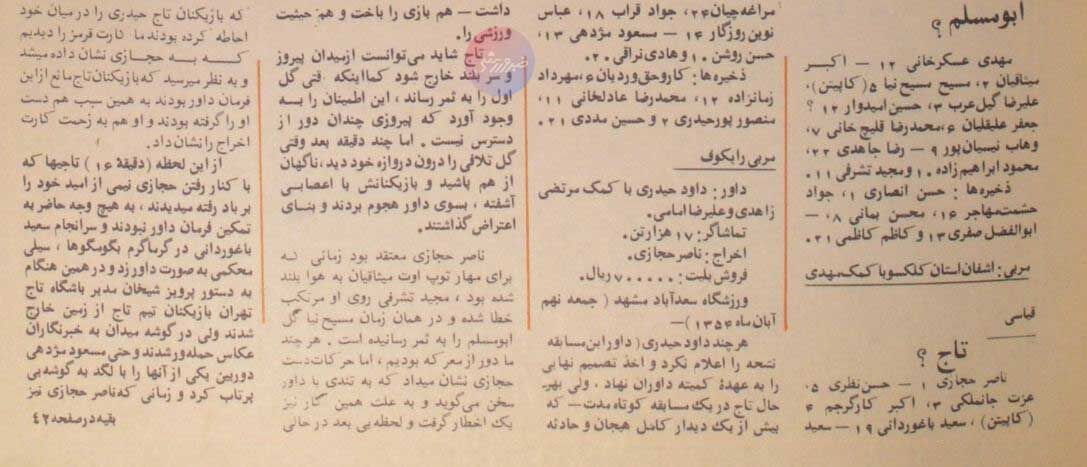 ابومسلم ؟
مهدی عسکرخانی ۱۲ — اکبر
میثاقیان ۲، مسیح مسیح نیا ۵ (کاپیتن)،
علیرضا گیل عرب ۳، حسین امیدوار ۱۲ ؟
جعفر علیقلیان ۶، محمدرضا قلیچ خانی ۷،
وهاب نیسان پور ۹ — رضا جاهدی ۲۲،
محمود ابراهیم زاده ۱۰ و مجید تشرفی ۱۱.
ذخیره‌ها : حسن انصاری ۱، جواد
حشمت مهاجر ۱۶، محسن بمانی ۸، —
ابوالفضل صفری ۱۳ و کاظم کاظمی ۲۱.
مربی : اشفان استان کلکسو با کمک مهدی
قیاسی
تاج ؟
ناصر حجازی ۱ — حسن نظری ۵،
عزت جانملکی ۳، اکبر کارگرجم ۴
(کاپیتن) ، سعید باغوردانی ۱۹ — سعید
مراغه‌چیان ۲۴، جواد قراب ۱۸، عباس
نوین روزگار ۱۴ — مسعود مژدهی ۱۳،
حسن روشن ۱۰ و هادی نراقی ۲۰.
ذخیره‌ها : کاروحق وردیان ۶، مهرداد
زمانزاده ۱۲، محمدرضا عادلخانی ۱۱،
منصور پورحیدری ۲ و حسین مددی ۲۱.
مربی رایکوف
داور : داود حیدری با کمک مرتضی
زاهدی و علیرضا امامی.
تماشاگر : ۱۷ هزار تن.
اخراج : ناصر حجازی.
فروش بلیت : ۷۰۰۰۰۰ ریال.
ورزشگاه سعدآباد مشهد ( جمعه نهم
آبان ماه ۱۳۵۴ )—
هرچند داود حیدری ( داور این مسابقه
نتیجه را اعلام نکرد و اخذ تصمیم نهایی
را به عهدهٔ کمیته داوران نهاد . ولی بهر
حال تاج در یک مسابقه کوتاه مدت — که
بیش از یک دیدار کامل هیجان و حادثه
داشت — هم بازی را باخت و هم حیثیت
ورزشی را.
تاج شاید می‌توانست از میدان پیروز
و سر بلند خارج شود کما اینکه فتی گل
اول را به ثمر رساند ، این اطمینان را به
وجود آورد که پیروزی چندان دور از
دسترس نیست . اما چند دقیقه بعد وقتی
گل تلافی را درون دروازه خود دید، ناگهان
از هم پاشید و بازیکنانش با اعصابی
آشفته ، بسوی داور هجوم بردند و بنای
اعتراض گذاشتند.
ناصر حجازی معتقد بود زمانی که
برای مهار توپ اوت میثاقیان به هوا بلند
شده بود ، مجید تشرفی روی او مرتکب
خطا شده و در همان زمان مسیح نیا گل
ابومسلم را به ثمر رسانیده است . هر چند
ما دور از معرکه بودیم ، اما حرکات دست
حجازی نشان میداد که به تندی با داور
سخن می‌گوید و به علت همین کار نیز
یک اخطار گرفت و لحظه‌یی بعد در حالی
که بازیکنان تاج حیدری را در میان خود
احاطه کرده بودند ما کارت قرمز را دیدیم
که به حجازی نشان داده میشد
و به نظر میرسید که بازیکنان تاج مانع از این
فرمان داور بودند به همین سبب هم دست
او را گرفته بودند و او هم به زحمت کارت
اخراج را نشان داد.
از این لحظه (دقیقهٔ ۱۶) تاجیها که
با کنار رفتن حجازی نیمی از امید خود را
بر باد رفته میدیدند ، به هیچ وجه حاضر به
تمکین فرمان داور نبودند و سرانجام سعید
باغوردانی در گرماگرم بگومگوها ، سیلی
محکمی به صورت داور زد و در همین هنگام
به دستور پرویز شیخان مدیر باشگاه تاج
تهران بازیکنان تیم تاج از زمین خارج
شدند ولی در گوشه میدان به خبرنگاران
عکاس حمله‌ور شدند و حتی مسعود مژدهی
دوربین یکی از آنها را با لگد به گوشه‌یی
پرتاب کرد و زمانی که ناصر حجازی نیز
بقیه در صفحه ۴۲
خبرورزشی